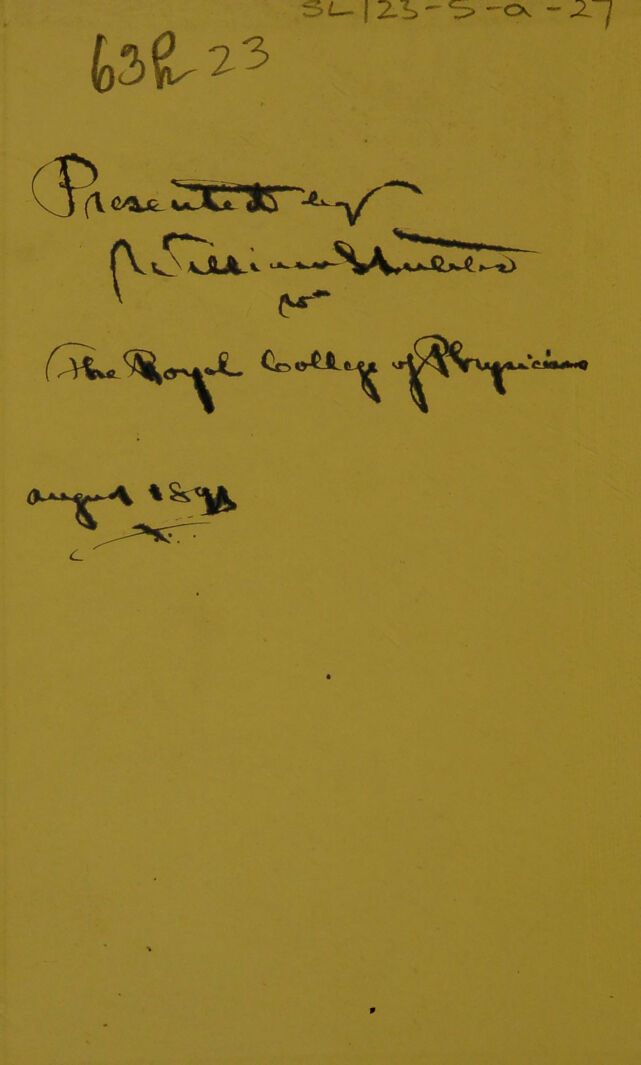 SL/23-5-a-27
63h 23
Presented by
William Stubbs
to
The Royal College of Physicians
August